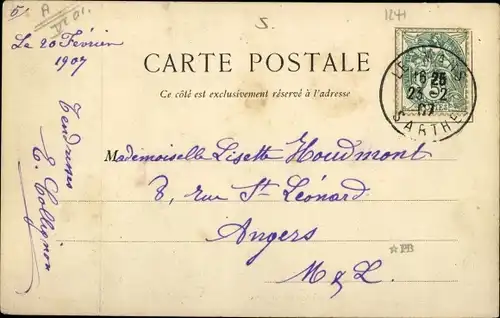 5/
A
S.
1241
Le 20 Février
1907
CARTE POSTALE
Ce côté est exclusivement réservé à l'adresse
LE MANS
18 25
23 - 2
07
SARTHE
Tendresses
E. Collignon
Mademoiselle Lisette Houdmont
8, rue St Léonard
Angers
M & L.
☆PB